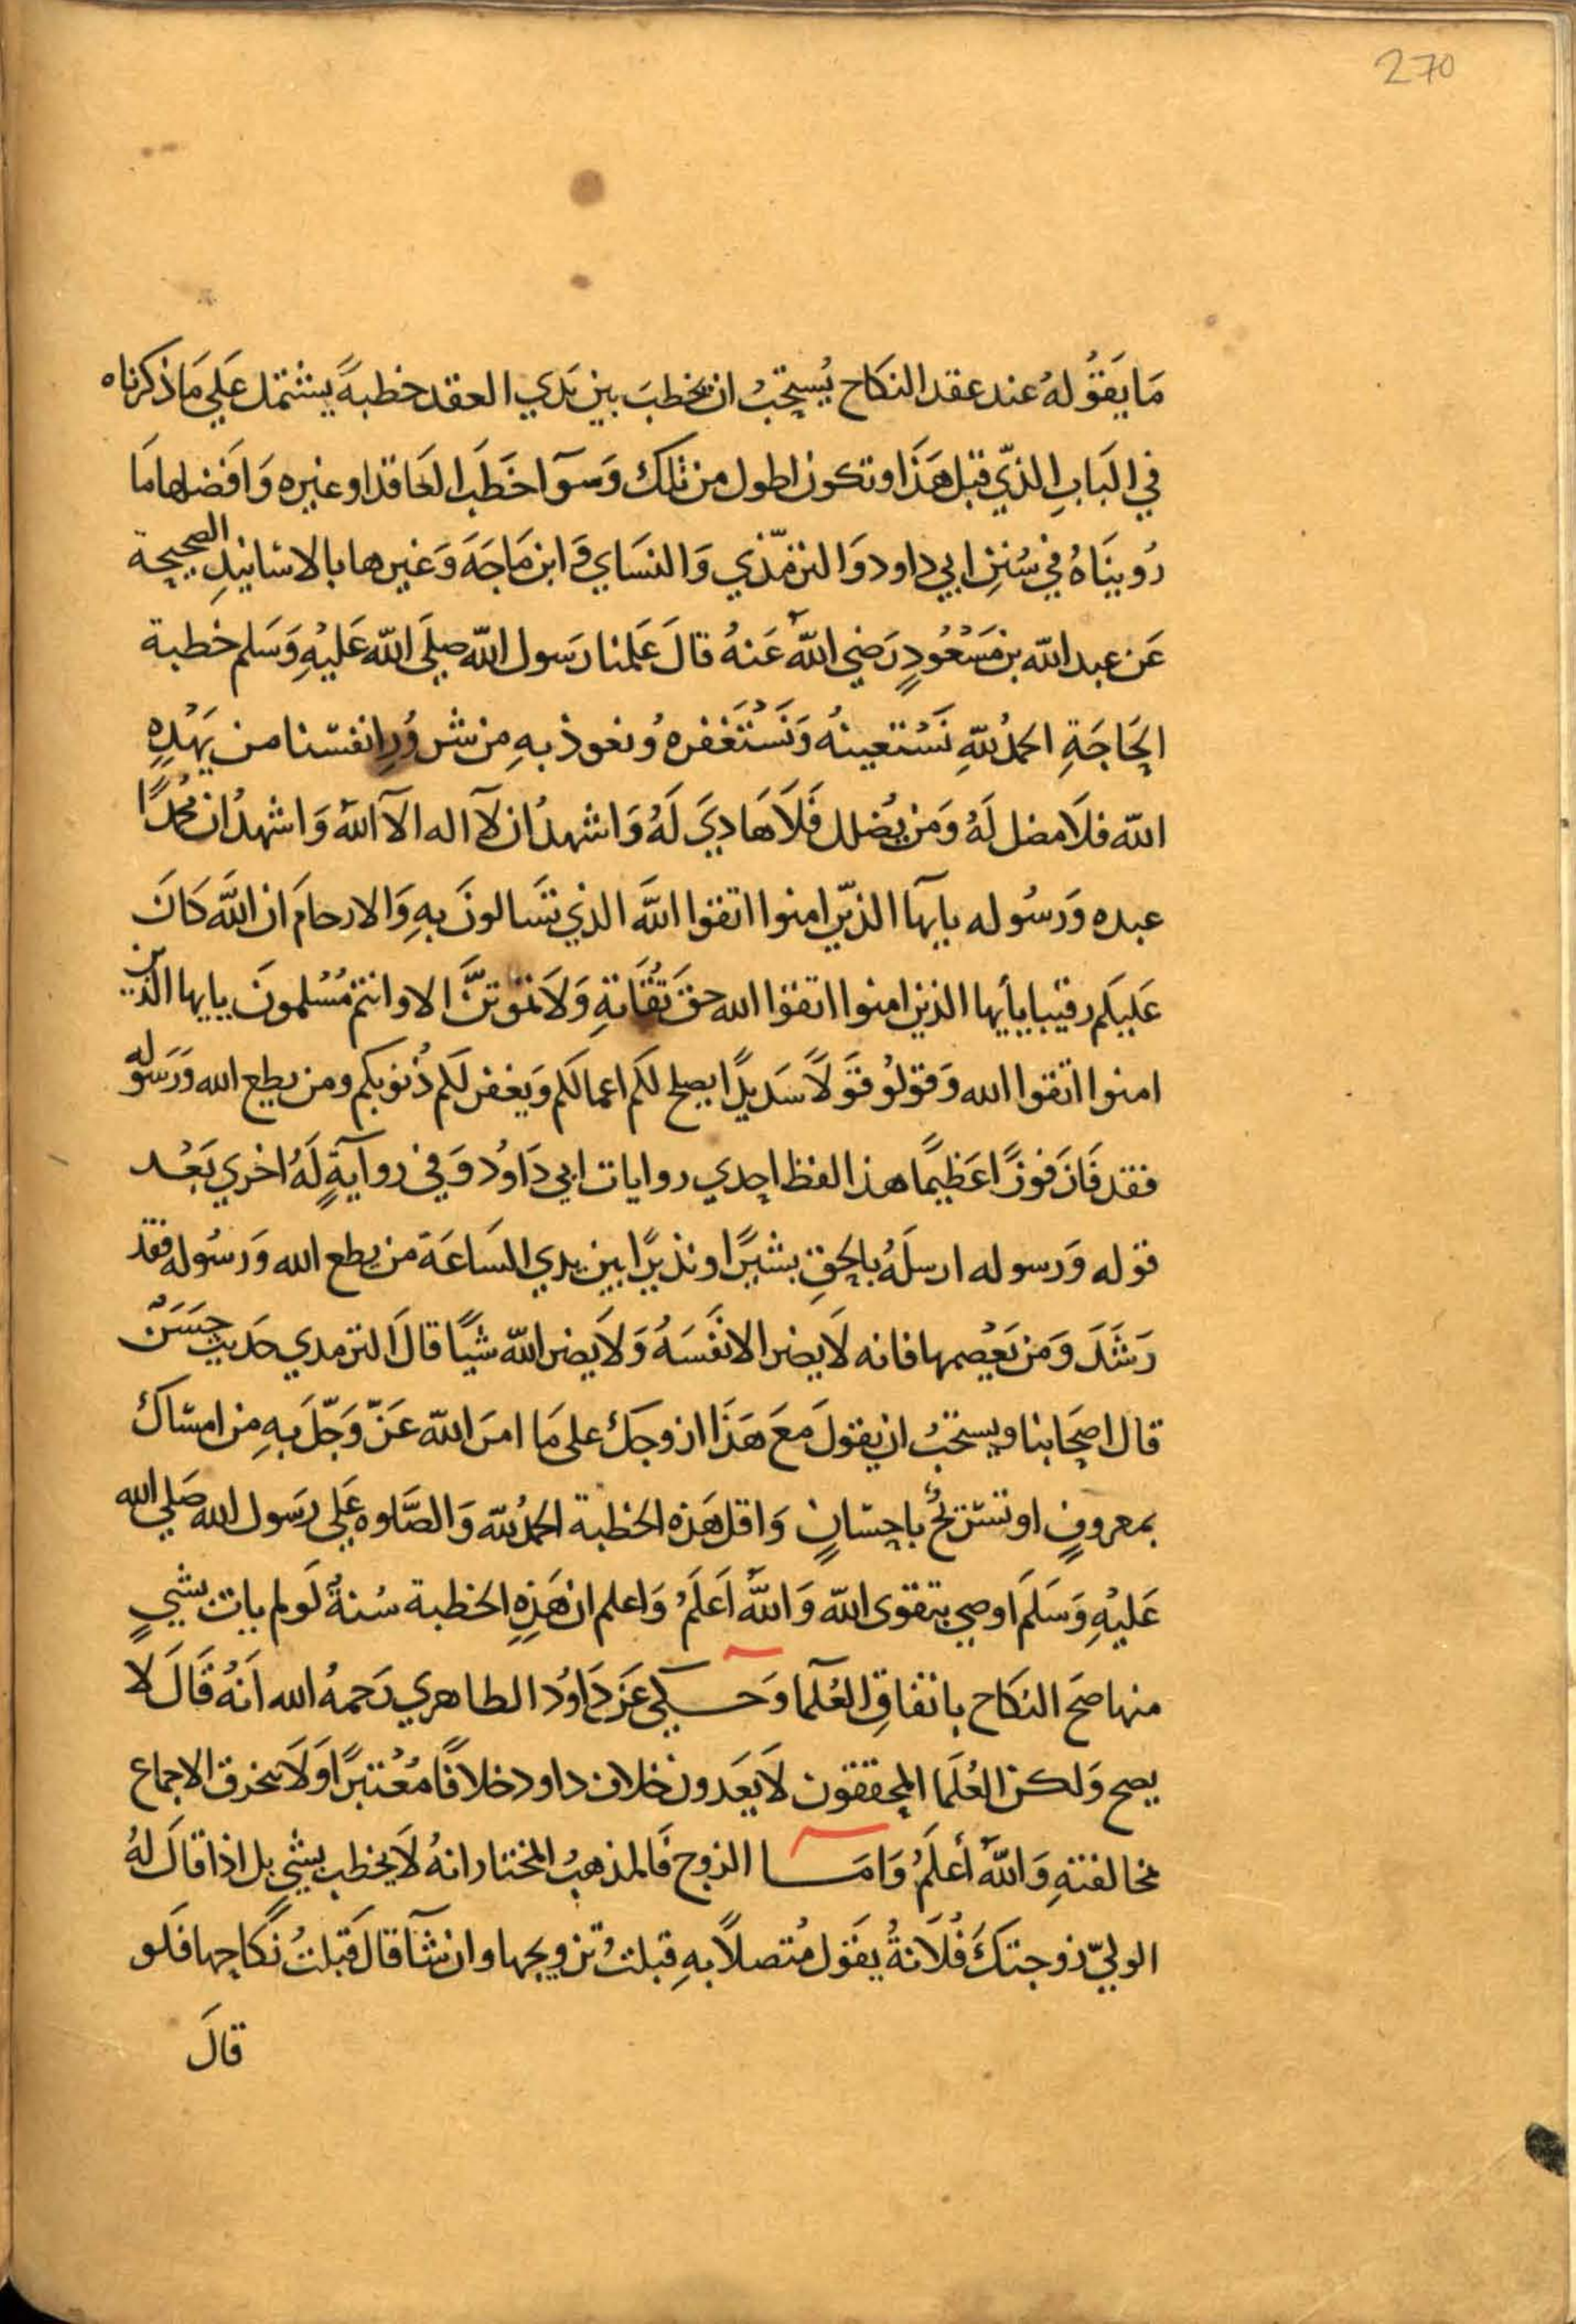 270
مَا يَقُولُهُ عند عقد النكَاح يُستحِبُ ان يخطبَ بين يَدي العقد خطبةً يشتمل عَلي مَا ذكرناه
في البَابِ الذّي قبل هَذَا وتكون اطول من تلك وَسوآ خَطَبَ العَاقد او غيره وَافضلها مَا
رُوينَاهُ في سُننِ ابي داود وَالترمّذي وَالنسَاي وَ ابن مَاجَهَ وَغيرها بالاسَانيدِ الصحيحة
عَن عبد الله بن مَسْعُودٍ رَضي اللهُ عَنهُ قالَ عَلمنا رَسول الله صلَي الله عَليْهِ وَسَلم خطبة
الحَاجَةِ الحمدُ للهِ نَسْتعينهُ وَنَسْتَغفره وُنعوذ بهِ من شر وُرِ انفسنا من يَهْدِهِ
الله فلَا مضل لَهُ وَمَن يُضلل فَلَا هَاديَ لَهُ وَاشهدُ ان لآ اله الآ اللهُ وَاشهدُ ان محُمدًا
عبده وَرسُوله يايهَا الذّين امنوا اتقوا اللهَ الذي تسَالونَ بهِ وَالارحامَ ان اللهَ كَانَ
عَليكم رقيبا يايأيها الذين امنوا اتقوا الله حقَ تُقَاتهِ وَلَا تموتنَّ الا وانتم مُسْلمونَ يايها الذين
امنوا اتقوا الله وَقولوُ قَولًا سَديدًا يصلح لكم اعمالكم وَيغفر لكم ذُنوبكم ومن يطع الله وَرَسَوله
فقد فَازَ فَوزًا عَظيمًا هذا لفظ احدي روايات ابي دَاوُد وَفي روايَةٍ لَهُ اخري بَعْد
قوله وَرسوله ارسلَهُ بالحقِ بشيرًا ونذيرًا بين يدي السَاعَة من يطع الله وَرسُوله فقد
رَشَدَ وَمَن يَعْصهما فانه لَا يضر الا نفَسَهُ وَلَا يضر الله شيًا قالَ الترمدي حَديث حِسَنْ
قال اصحَابنا ويستحبُ ان يقولَ معَ هَذَا ازوجكَ على مَا امرَ الله عَزّ وَجّلَ بهِ من امسَاك
بمعروفٍ او تسَريحٌ باحسَانٍ وَاقل هَذه الخطبة الحمدُ لله وَالصَّلوه عَلي رسَول الله صَلي الله
عَليْهِ وَسَلمَ اوصي بتقوى الله وَاللهُ اَعَلَمُ وَاعلم ان هَذِهِ الخطبة سُنةٌ لَو لم يات بشيٍ
منها صَح النكَاح باتفاقِ العُلمآ وَحَكي عَن دَاوُد الطاهري رَحمهُ الله اَنهُ قَالَ لا
يصح وَلكن العُلمَا المحققون لَا يَعَدون خلاف داود خلافًا مُعْتبرًا وَلَا ينخرق الاجماع
بمخالفتهِ وَاللهُ أعلَمُ وَامَا الزوج فَالمذهبُ المختار انهُ لَا يخطب بشيٍ بل اذا قالَ لهُ
الوليّ زوجتكَ فُلَانةُ يقَول مُتصلًا بهِ قبلتُ تزويجها وان شآ قالَ قَبلتُ نكَاحها فَلَو
قالَ